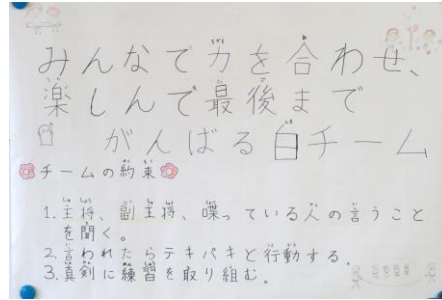 みんなで力を合わせ、
楽しんで最後まで
がんばる白チーム
チームの約束
1. 主将、副主将、喋っている人の言うこと
を聞く。
2. 言われたらテキパキと行動する。
3. 真剣に練習を取り組む。